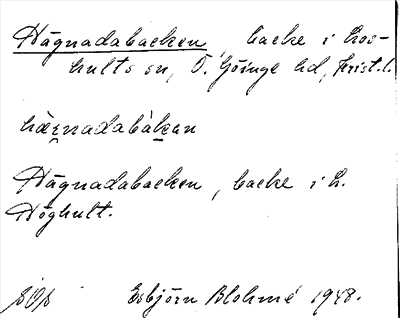 Hägnadabacken, backe i Los-
hults sn, Ö. Göinge hd, Krist. l.
hägnadabakan
Hägnadabacken, backe i L.
Höghult.
Esbjörn Blohmé 1948.